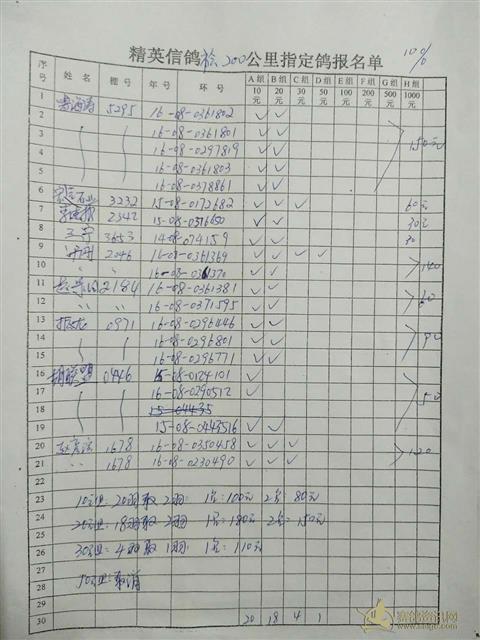 精英信鸽 200公里指定鸽报名单 10%
序号 姓名 棚号 年号 环号 A组10元 B组20元 C组30元 D组50元 E组100元 F组200元 G组500元 H组1000元
1 5295 16-08-0361802 ✓ ✓
2 16-08-0361801 ✓ ✓
3 16-08-0297819 ✓ ✓ 150元
4 16-08-0361803 ✓ ✓
5 16-08-0378861 ✓ ✓
6 3232 15-08-0172682 ✓ ✓ ✓ 60元
7 2342 15-08-0376650 ✓ ✓ 30元
8 王宇 3653 14-08-074159 ✓ ✓ 30
9 2046 16-08-0361369 ✓ ✓ ✓ ✓
10 〃 16-08-0361370 ✓ ✓ 140
11 2184 16-08-0361381 ✓ ✓
12 〃 〃 16-08-0371595 ✓ ✓ 60
13 0971 16-08-0296446 ✓ ✓
14 16-08-0296801 ✓ ✓ 90
15 16-08-0296771 ✓ ✓
16 0446 15-08-0124101 ✓
17 16-08-0290512 ✓
18 15-04435 50
19 15-08-0443516 ✓ ✓
20 1678 16-08-0350458 ✓ ✓ ✓
21 〃 1678 16-08-0230490 ✓ ✓ ✓ 120
22
23 10元组:20羽取2羽: 1名:100元 2名 80元
24 20元组:18羽取2羽 1名:180元 2名:150元
25
26 30元组:4羽取1羽: 1名:110元
27
28 50元组:取消
29
30 20 18 4 1
赛鸽资讯网